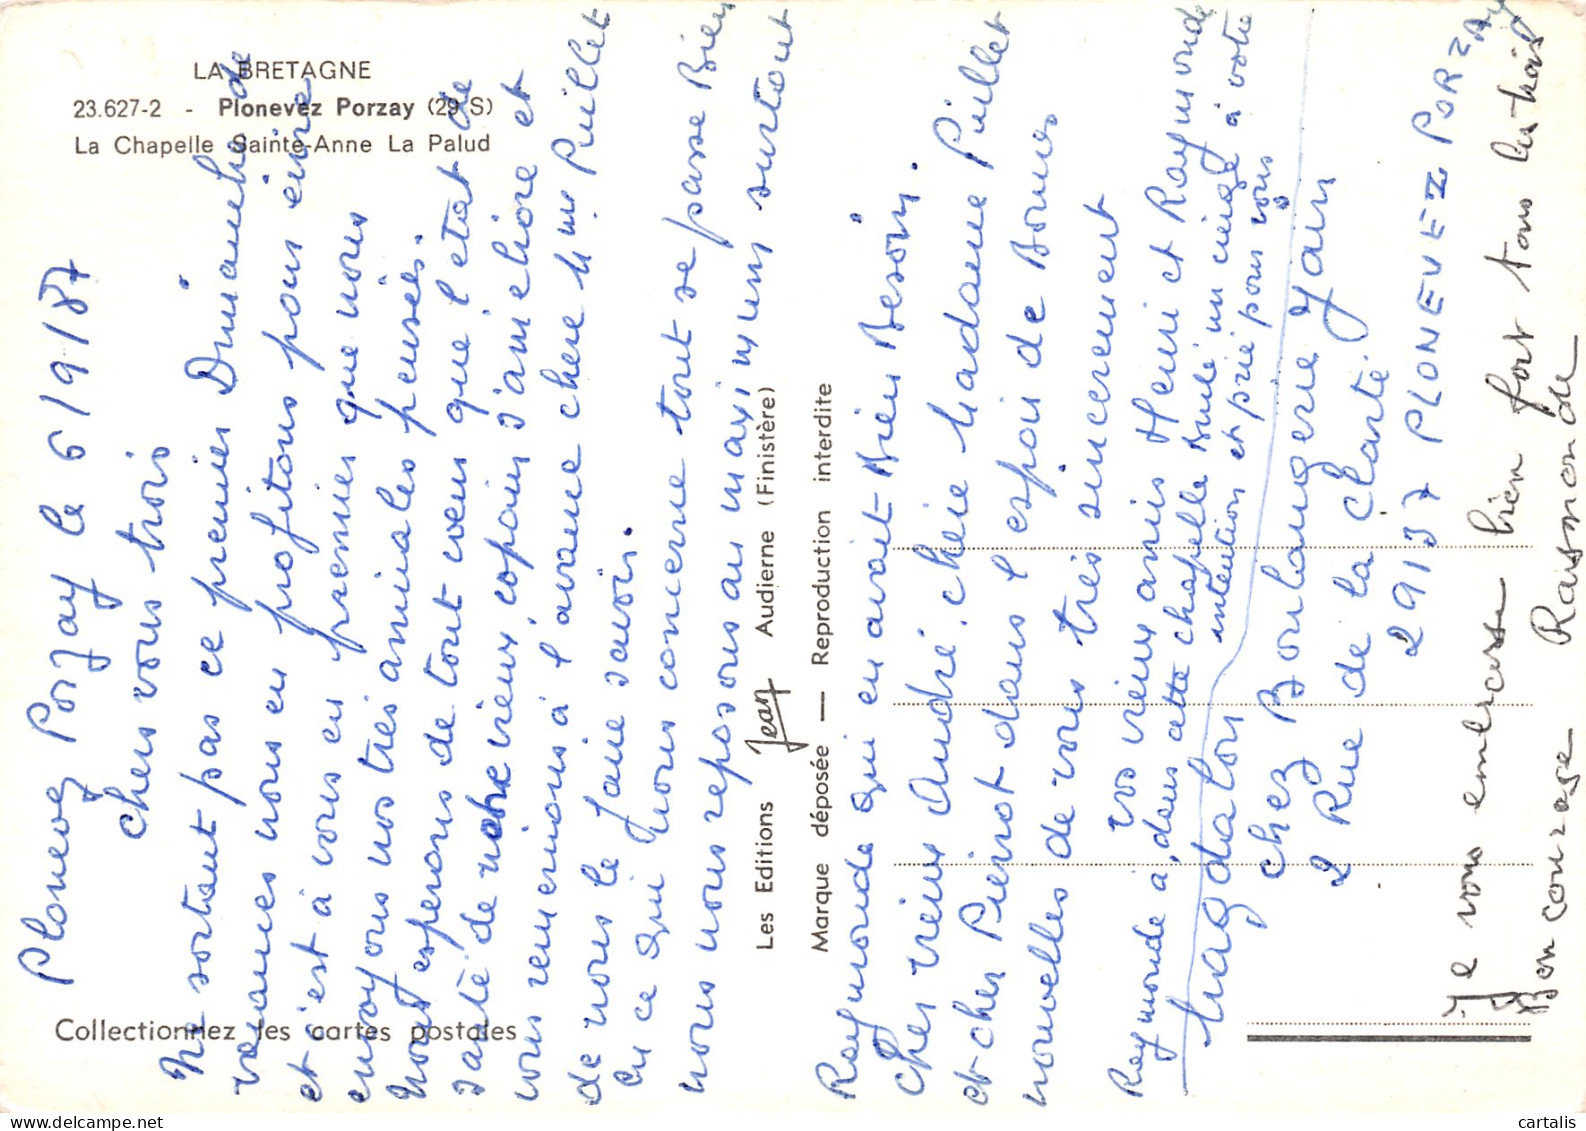 LA BRETAGNE
23.627-2 - Plonevez Porzay (29 S)
La Chapelle Sainte-Anne La Palud
Collectionnez les cartes postales
Les Editions Jean Audierne (Finistère)
Marque déposée — Reproduction interdite
Plonevez Porzay le 6/9/87
chers vous trois
Ne sortant pas ce premier Dimanche de
vacances nous en profitons pour écrire
et c'est à vous en premier que nous
envoyons nos très amicales pensées.
Nous esperons de tout coeur que l'etat de
santé de notre vieux copain s'ameliore et
vous remercions à l'avance chere Mme Puillet
de nous le faire savoir.
En ce qui nous concerne tout se passe Bien
nous nous reposons au maximum surtout
Raymonde qui en avait Bien Besoin.
Cher vieux André, chere Madame Puillet
et cher Pierrot dans l'espoir de Bonnes
nouvelles de vous très sincerement
vos vieux amis Henri et Raymonde
Raymonde à, dans cette chapelle Brulé un cierge à votre
intention et prié pour vous
Magdalou
chez Boulangerie Jain
2 Rue de la clarté.
29137 PLONEVEZ PORZAY
Je vous embrasse bien fort tous les trois
Bon courage Raismonde
cartalis